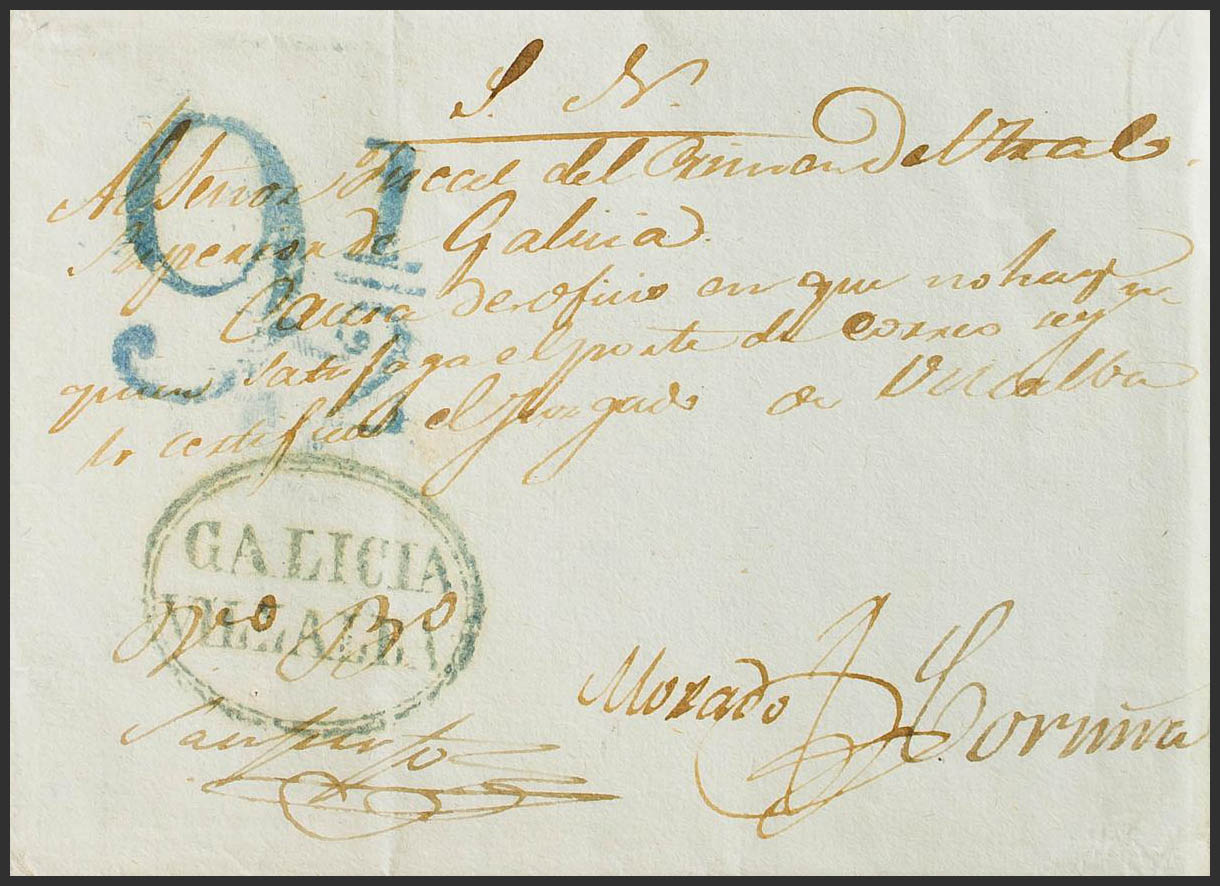 S. N.
Al Señor Fiscal del Crimen del Tral
Superior de Galicia.
Causa de oficio en que no hay
quien satisfaga el porte de correo
lo certifica el Juzgado de Villalba
9 1/2
GALICIA
VILLALBA
Morado
Coruña